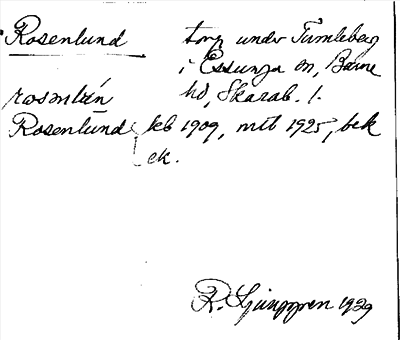 Rosenlund torp under Tumleberg
i Essunga sn, Barne
rosmlún hd, Skarab. l.
Rosenlund keb 1909, mtb 1925, bek
ek.
R. Ljunggren 1929